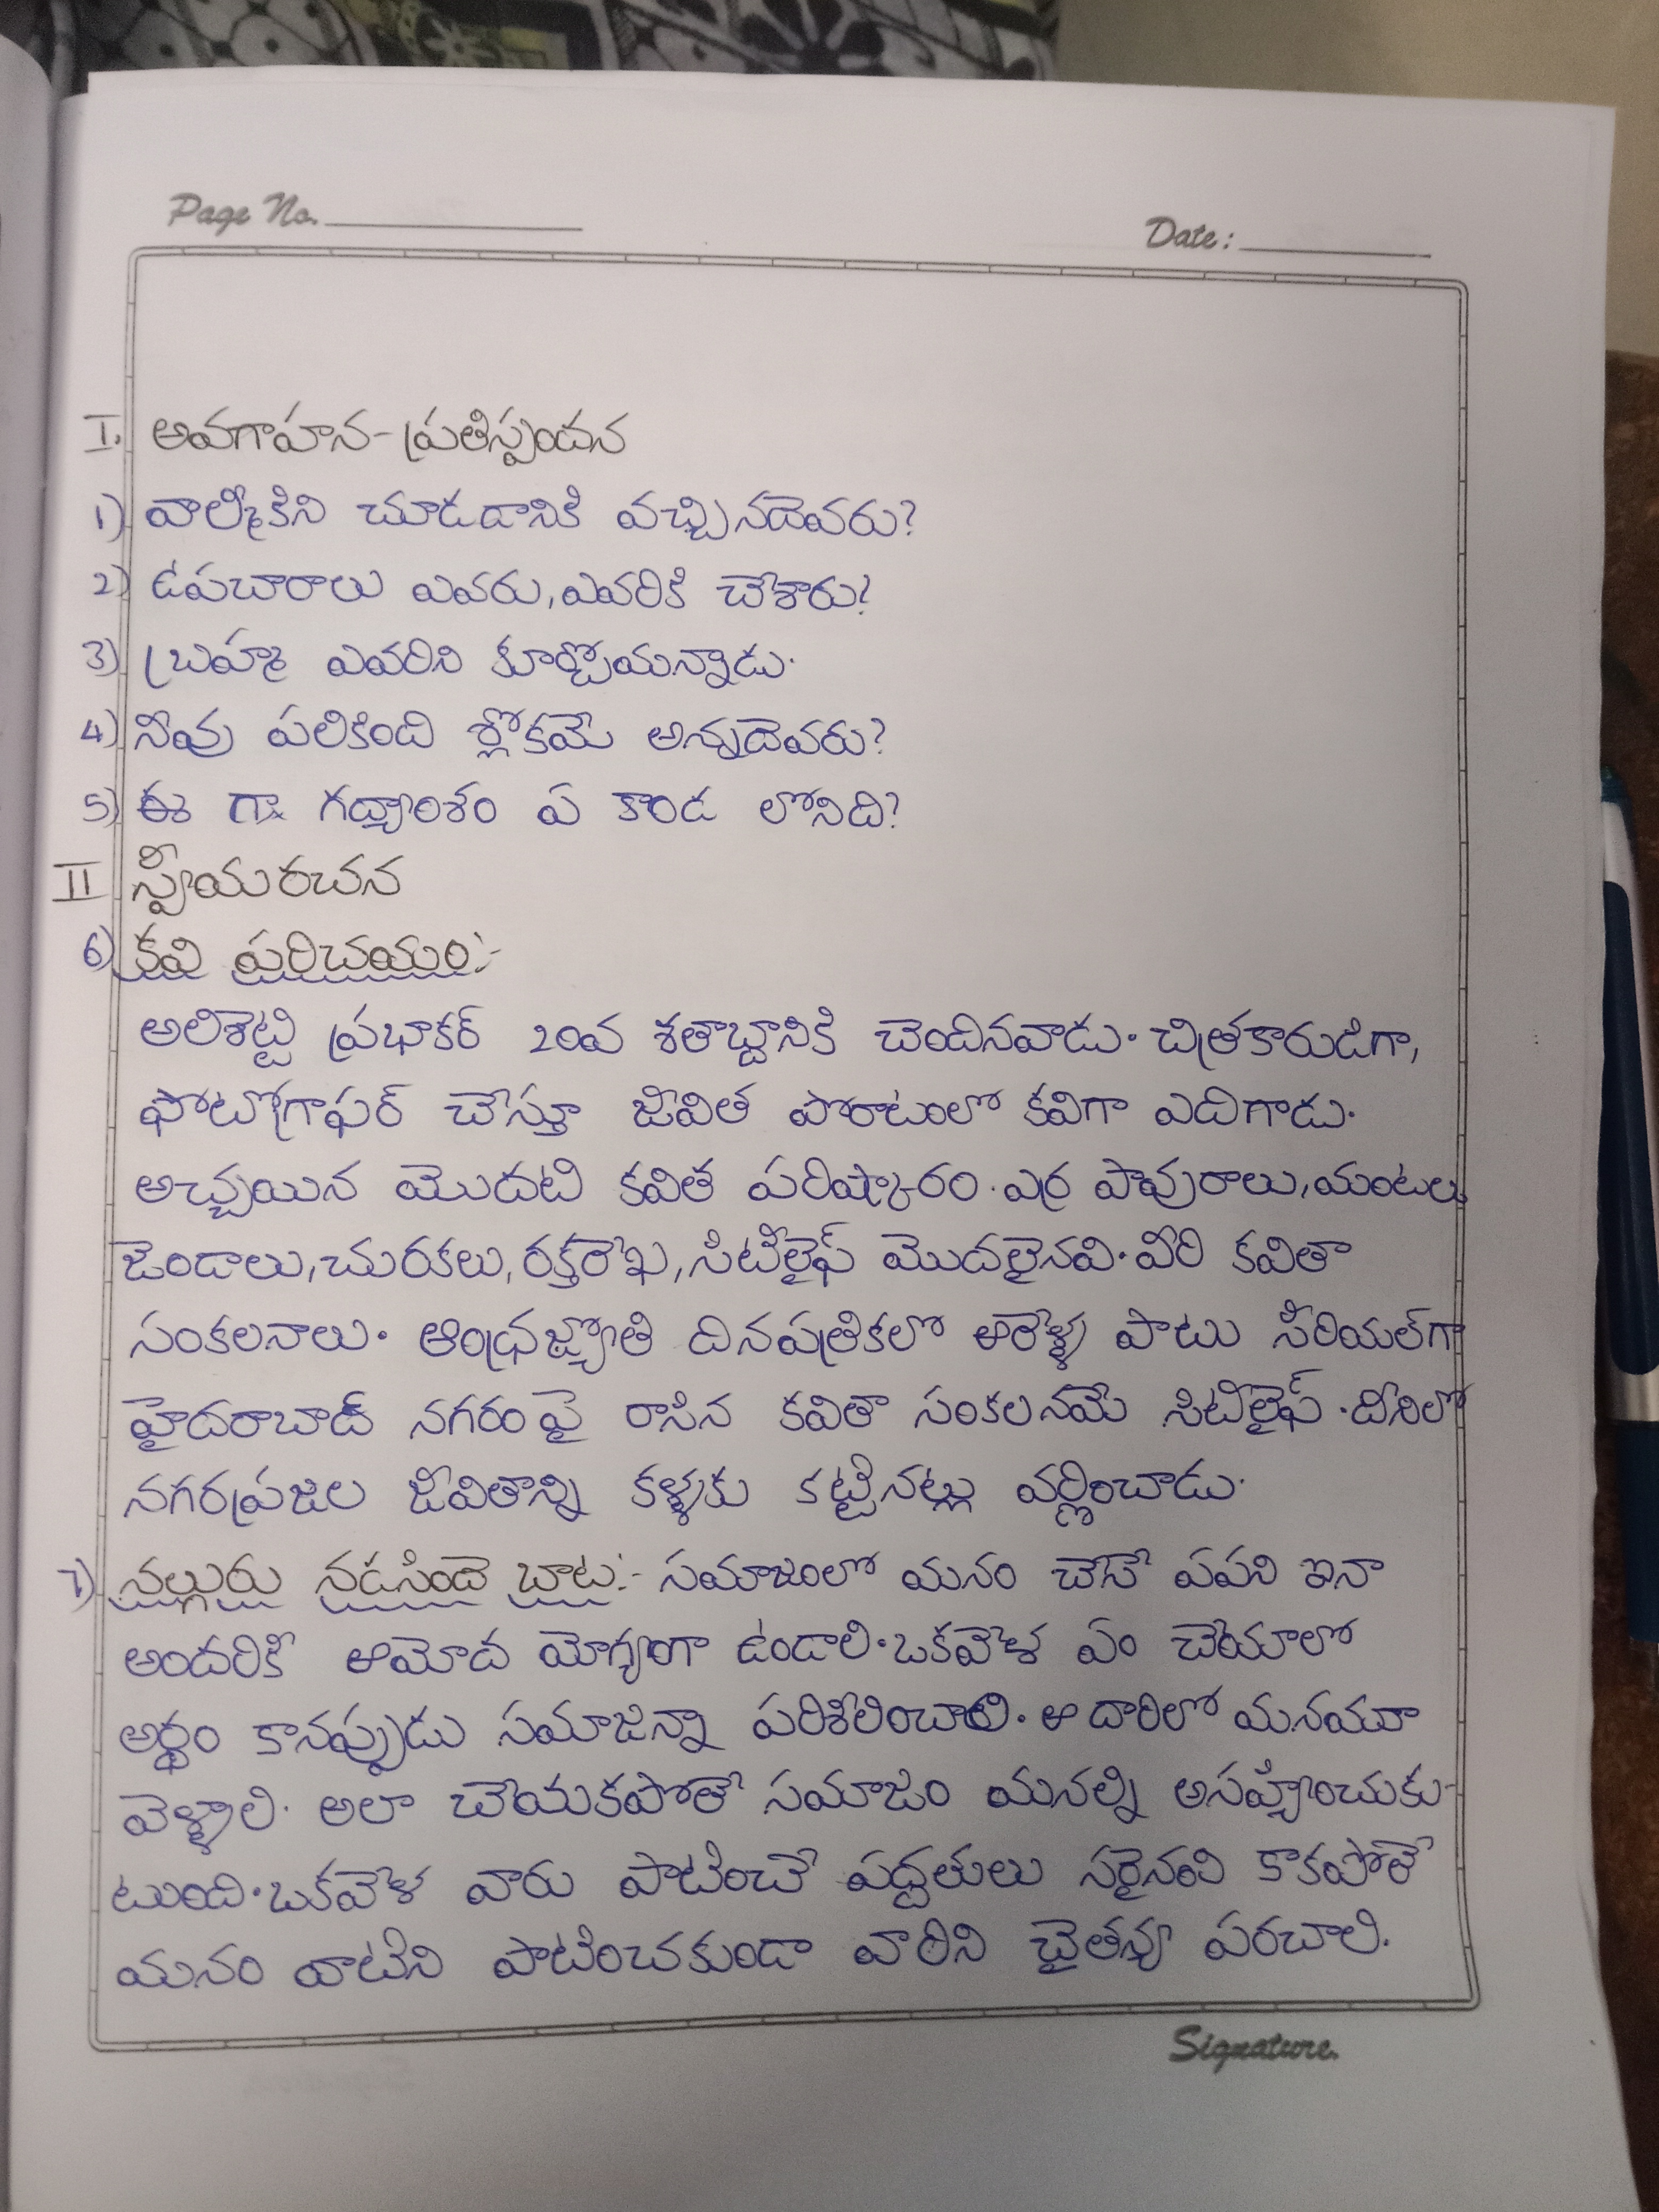 Page No.
Date:
I. అవగాహన-ప్రతిస్పందన
1) వాల్మీకిని చూడడానికి వచ్చినదెవరు?
2) ఉపచారాలు ఎవరు, ఎవరికి చేశారు?
3) బ్రహ్మ ఎవరిని కూర్చోమన్నాడు.
4) నీవు పలికింది శ్లోకమే అన్నదెవరు?
5) ఈ గా గద్యాంశం ఏ కాండ లోనిది?
II స్వీయరచన
6) కవి పరిచయం:-
అలిశెట్టి ప్రభాకర్ 20వ శతాబ్దానికి చెందినవాడు. చిత్రకారుడిగా,
ఫోటోగ్రాఫర్ చేస్తూ జీవిత పోరాటంలో కవిగా ఎదిగాడు.
అచ్చయిన మొదటి కవిత పరిష్కారం. ఎర్ర పావురాలు, మంటల
జెండాలు, చురకలు, రక్తరేఖ, సిటీలైఫ్ మొదలైనవి. వీరి కవితా
సంకలనాలు. ఆంధ్రజ్యోతి దినపత్రికలో ఆరేళ్ళ పాటు సీరియల్‌గా
హైదరాబాద్ నగరం పై రాసిన కవితా సంకలనమే సిటీలైఫ్. దీనిలో
నగరప్రజల జీవితాన్ని కళ్ళకు కట్టినట్లు వర్ణించాడు.
7) నల్గురు నడిసిందె బాట:- సమాజంలో మనం చేసే ఏపని ఐనా
అందరికీ ఆమోద యోగ్యంగా ఉండాలి. ఒకవేళ ఏం చేయాలో
అర్థం కానప్పుడు సమాజాన్ని పరిశీలించాలి. ఆ దారిలో మనమూ
వెళ్ళాలి. అలా చేయకపోతే సమాజం మనల్ని అసహ్యించుకు-
టుంది. ఒకవేళ వారు పాటించే పద్ధతులు సరైనవి కాకపోతే
మనం వాటిని పాటించకుండా వారిని చైతన్య పరచాలి.
Signature.